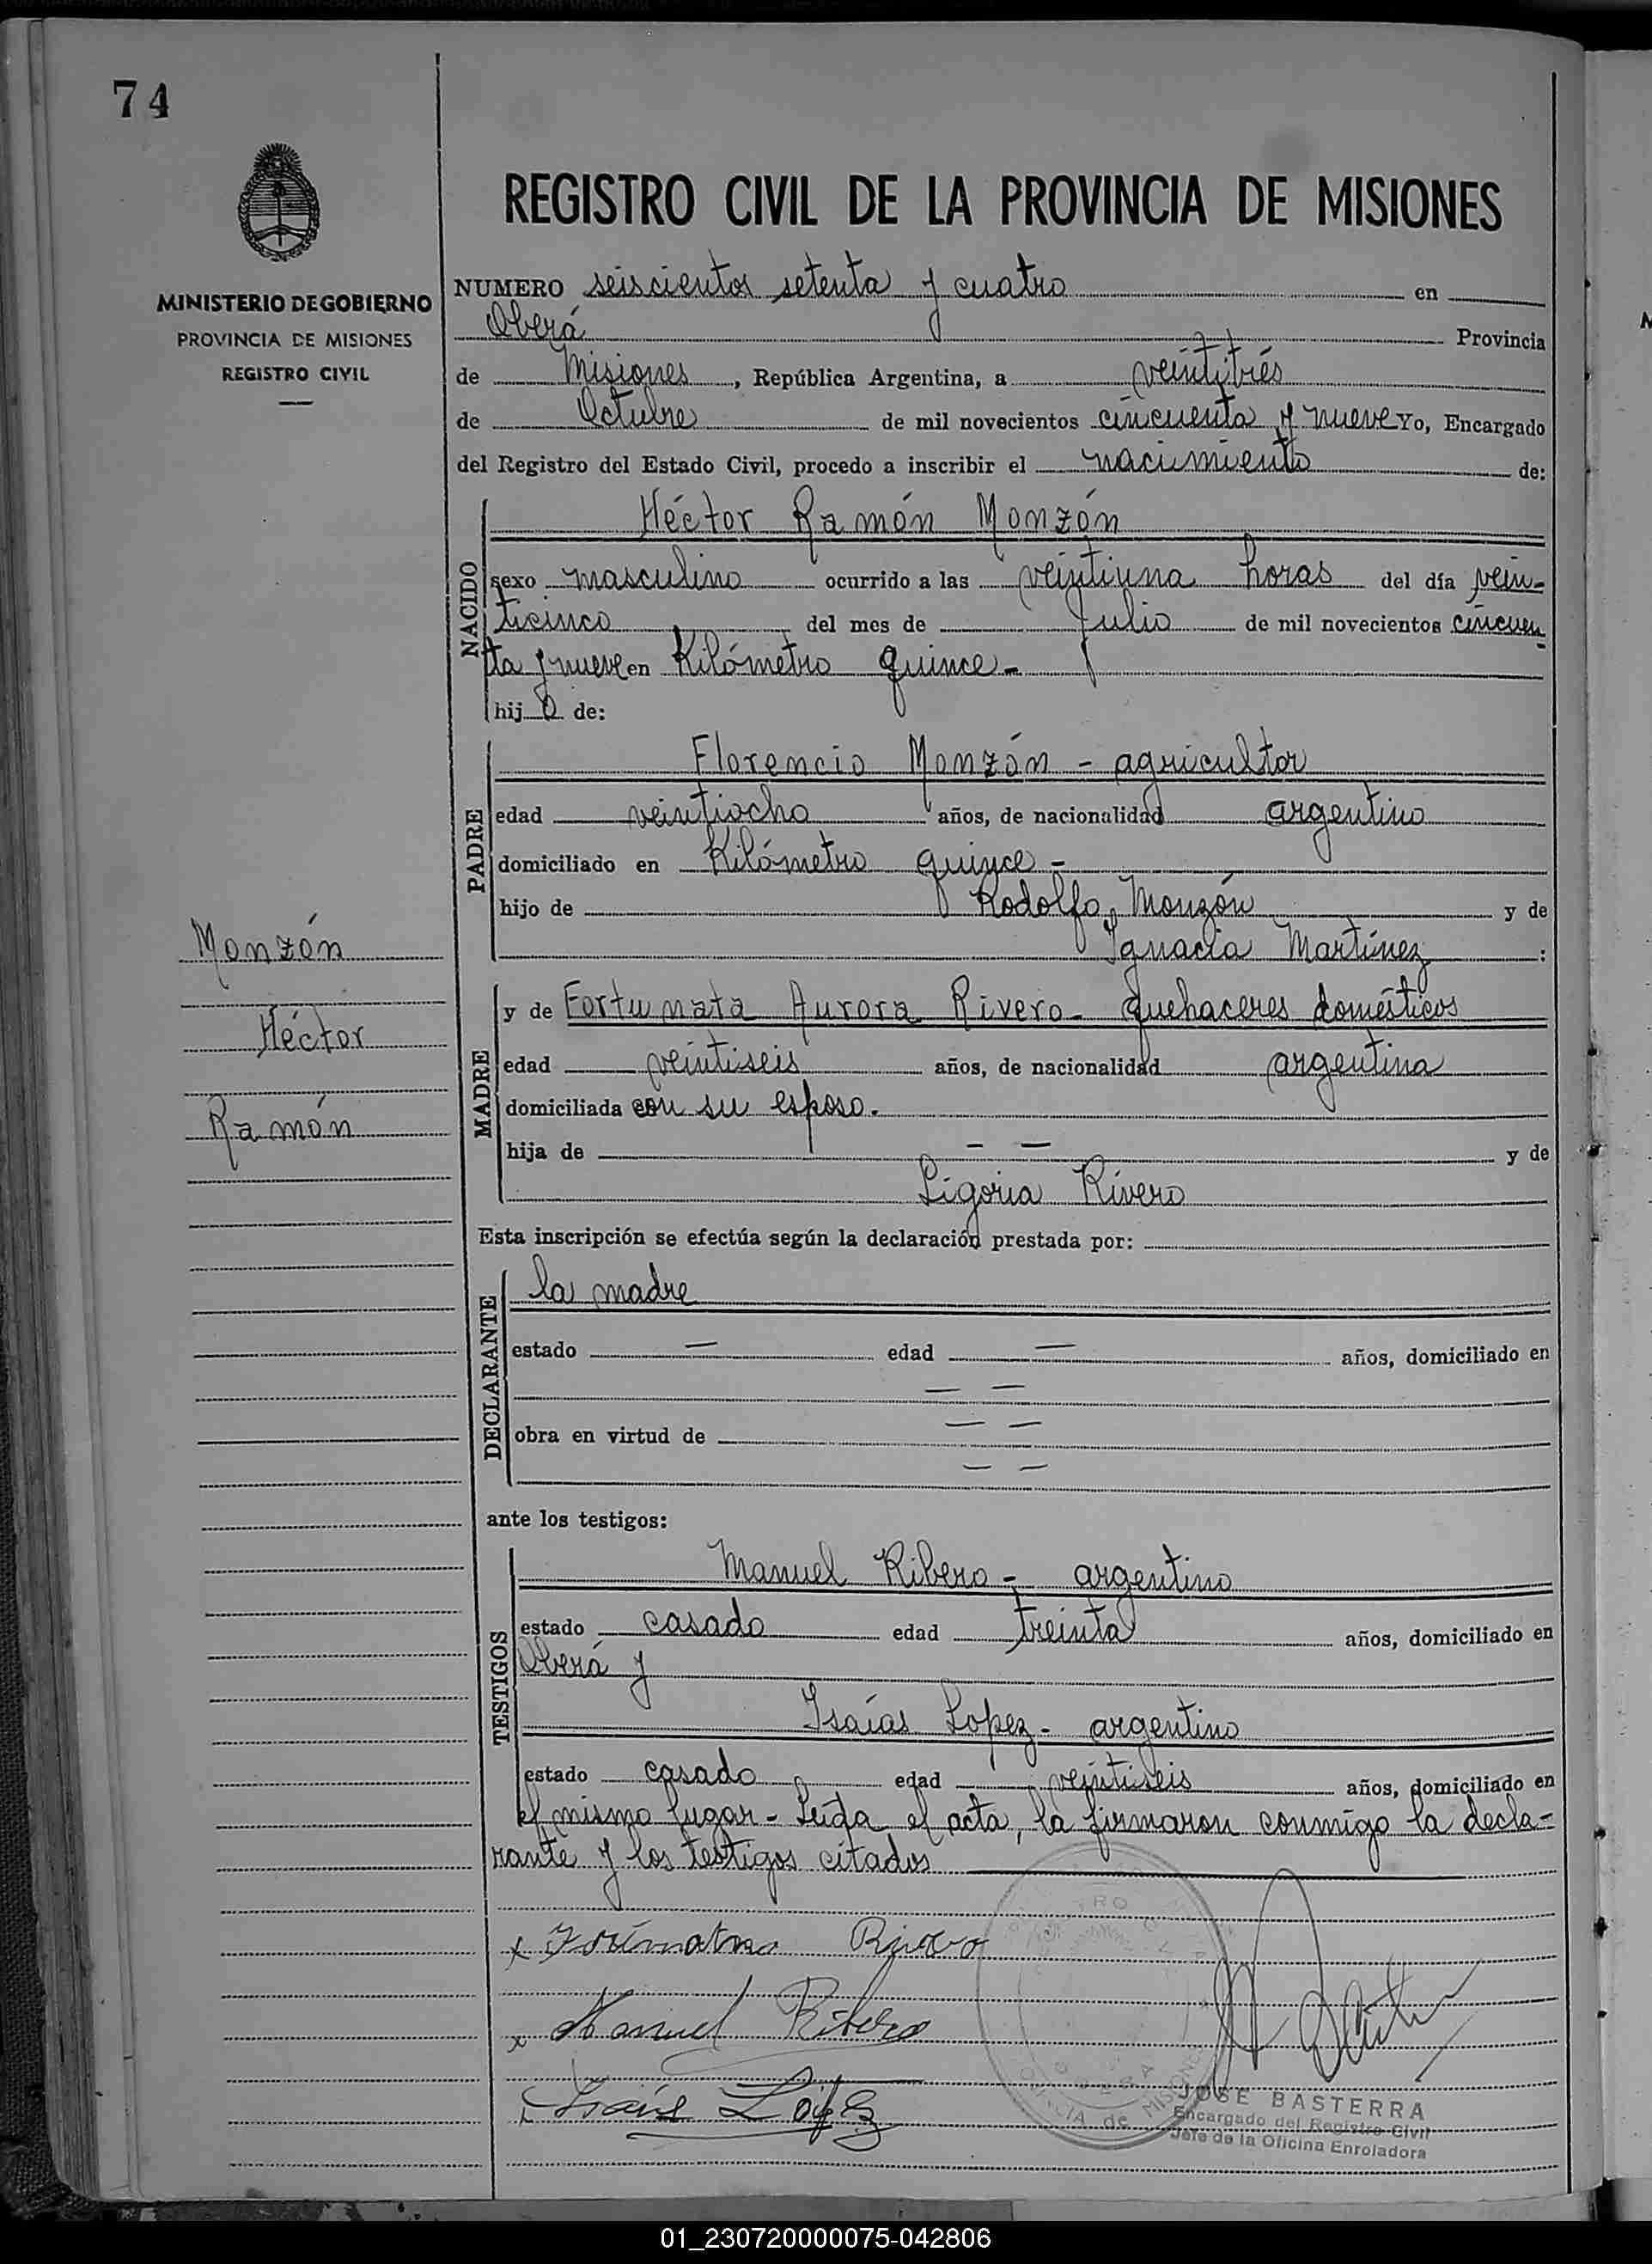 74
MINISTERIO DE GOBIERNO
PROVINCIA DE MISIONES
REGISTRO CIVIL
REGISTRO CIVIL DE LA PROVINCIA DE MISIONES
NUMERO seiscientos setenta y cuatro en
Oberá Provincia
de Misiones, República Argentina, a veintitrés
de Octubre de mil novecientos cincuenta y nueve Yo, Encargado
del Registro del Estado Civil, procedo a inscribir el nacimiento de:
NACIDO
Héctor Ramón Monzón
sexo masculino ocurrido a las veintiuna horas del día vein-
ticinco del mes de Julio de mil novecientos cincuen-
ta y nueve en Kilómetro quince-
hijo de:
PADRE
Florencio Monzón - agricultor
edad veintiocho años, de nacionalidad argentino
domiciliado en Kilómetro quince-
hijo de Rodolfo Monzón y de
Ignacia Martínez :
Monzón
Héctor
Ramón
MADRE
y de Fortunata Aurora Rivero- quehaceres domésticos
edad veintiseis años, de nacionalidad argentina
domiciliada con su esposo.
hija de — — y de
Ligoria Rivero
Esta inscripción se efectúa según la declaración prestada por:
DECLARANTE
la madre
estado — edad — años, domiciliado en
— —
obra en virtud de — —
— —
ante los testigos:
TESTIGOS
Manuel Ribero - argentino
estado casado edad treinta años, domiciliado en
Oberá y
Isaías Lopez- argentino
estado casado edad veintiseis años, domiciliado en
el mismo lugar - Leída el acta, la firmaron conmigo la decla-
rante y los testigos citados
x Rivero
x Manuel Ribero
x Isaías López
OBERA
PROVINCIA de MISIONES
JOSE BASTERRA
Encargado del Registro Civil
Jefe de la Oficina Enroladora
01_230720000075-042806